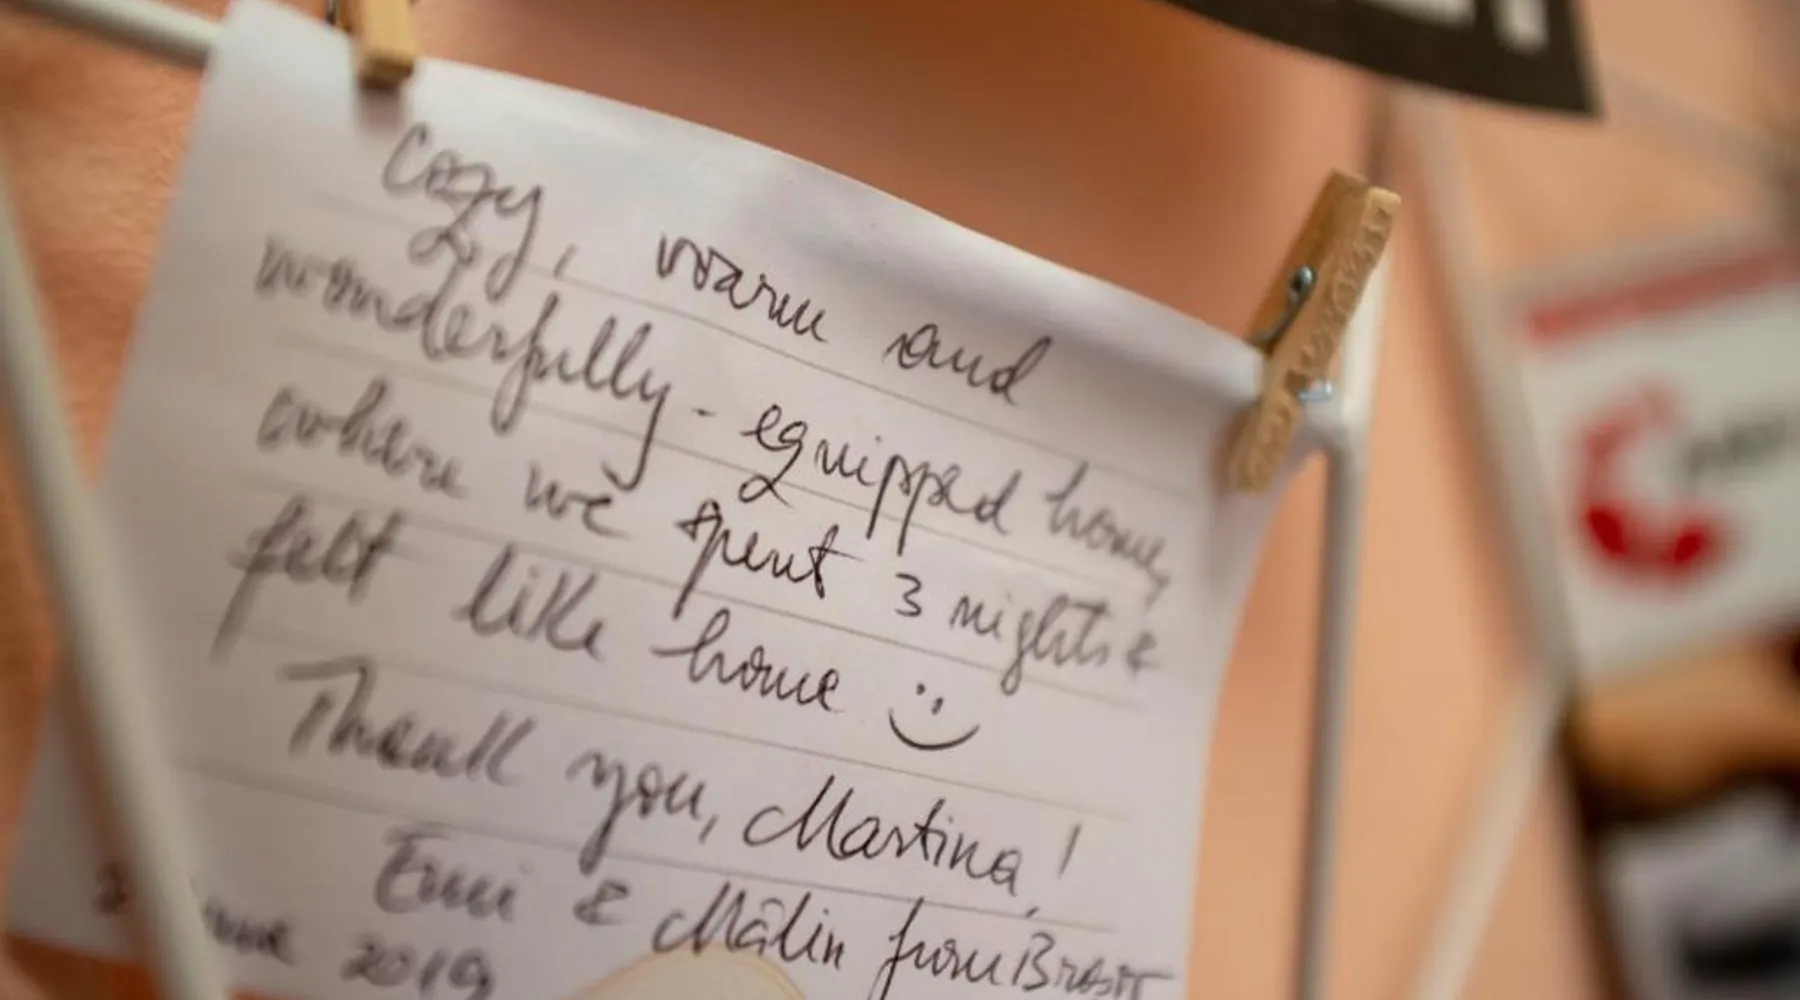 Cozy, warm and
wonderfully-equipped home,
where we spent 3 nights &
felt like home :)
Thank you, Martina!
Emi & Mălin from
2019